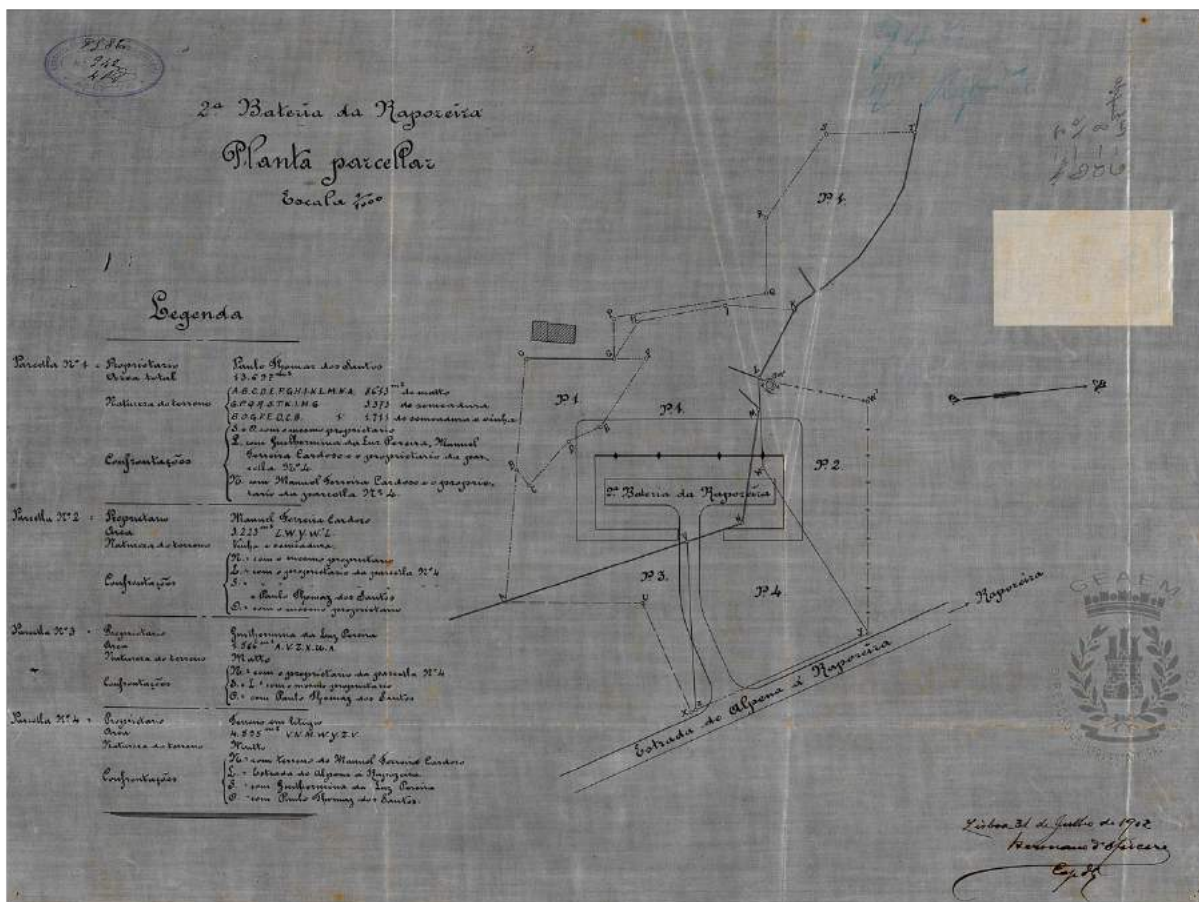 2ª Bateria da Raposeira
Planta parcellar
Escala 1/1000
Legenda
Parcella Nº 1 - Proprietario Paulo Thomaz dos Santos
Area total 13.697 m²
Natureza do terreno A.B.C.D.E.F.G.H.I.K.L.M.N.A. 8613 m² de matto
G.P.Q.R.S.T.K.I.H.G 3373 de semeadura
B.O.G.F.E.D.C.B. 1.711 de semeadura e vinha
Confrontações S. e O. com o mesmo proprietario
L. com Guilhermina da Luz Pereira, Manuel
Ferreira Cardoso e o proprietario da par-
cella Nº 4.
N. com Manuel Ferreira Cardoso e o proprie-
tario da parcella Nº 4.
Parcella Nº 2 - Proprietario Manuel Ferreira Cardoso
Area 3.223 m² L.W.Y.W'.L.
Natureza do terreno Vinha e semeadura
Confrontações N. - com o mesmo proprietario
L. - com o proprietario da parcella Nº 4
S. -
e Paulo Thomaz dos Santos
O. - com o mesmo proprietario
Parcella Nº 3 - Proprietario Guilhermina da Luz Pereira
Area A.V.Z.X.U.A.
Natureza do terreno Matto
Confrontações N. - com o proprietario da parcella Nº 4
S. e L. - com o mesmo proprietario
O. - com Paulo Thomaz dos Santos
Parcella Nº 4 - Proprietario Terreno em litigio
Area V.N.M.W.Y.Z.V.
Natureza do terreno Matto
Confrontações N. - com terreno de Manuel Ferreira Cardoso
L. - Estrada do Alpena á Raposeira
S. - com Guilhermina da Luz Pereira
O. - com Paulo Thomaz dos Santos.
S T
R
P. 1.
Q
P H I K
O G
L
W'
P. 1
P. 1.
M
P. 2.
2ª Bateria da Raposeira
N
V
P. 3.
P. 4
A U
Y
X Z
Raposeira
Estrada do Alpena á Raposeira
GEAEM
Lisboa 31 de Julho de 1902